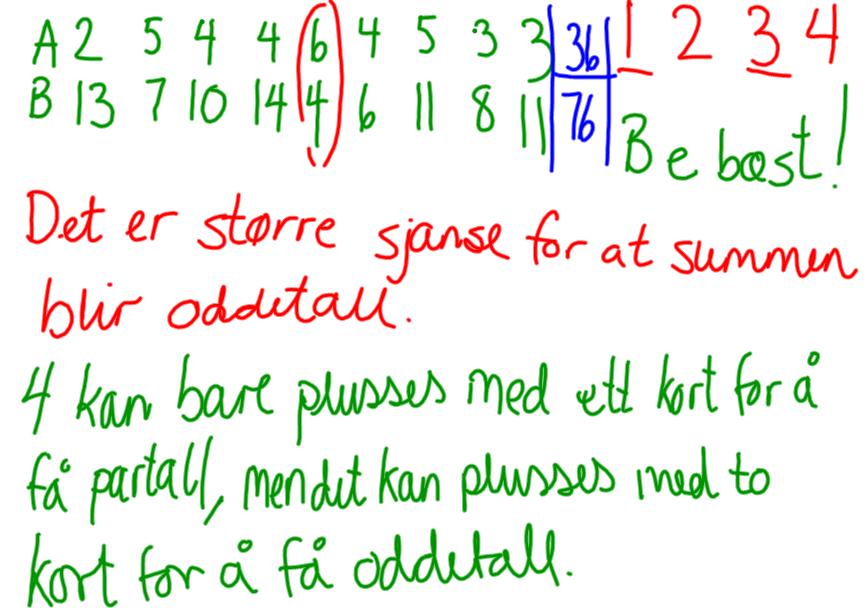 A 2 5 4 4 6 4 5 3 3 36 1 2 3 4
B 13 7 10 14 4 6 11 8 11 76 Be bast!
Det er større sjanse for at summen
blir oddetall.
4 kan bare plusses med ett kort for å
få partall, men det kan plusses med to
kort for å få oddetall.